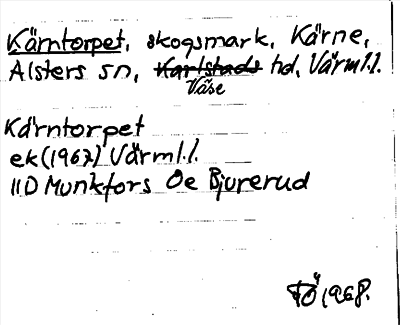 Kärntorpet, skogsmark, Kärne,
Alsters sn, Karlstads hd, Värml.l.
Väse
Kärntorpet
ek (1967) Värml.l.
11D Munkfors 0e Bjurerud
1968.